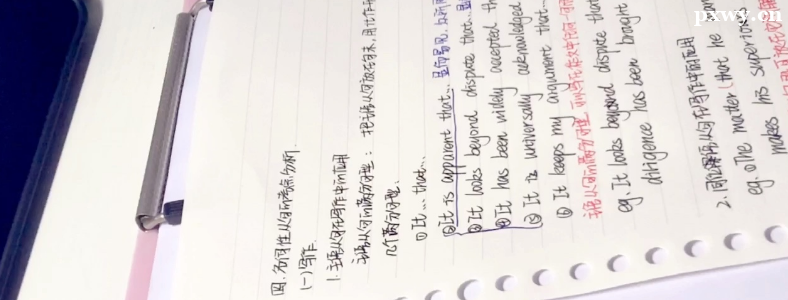 四.名词性从句的考点分析.
(一)写作.
1.主语从句在写作中的应用
主语从句的满分句型: 把主语从句放在句末,用it作形
几个满分句型:
①It … that…
②It is apparent that… 显而易见,
③It looks beyond dispute that…
④It has been widely accepted th
⑤It is universally acknowledged
⑥It keeps my argument that…
主语从句的满分句型,可以写在作文中任何一句
eg. It looks beyond dispute that
diligence has been brought
2.同位语从句在写作中的应用
eg. ①The matter (that he
makes his superiors
pxwy.cn